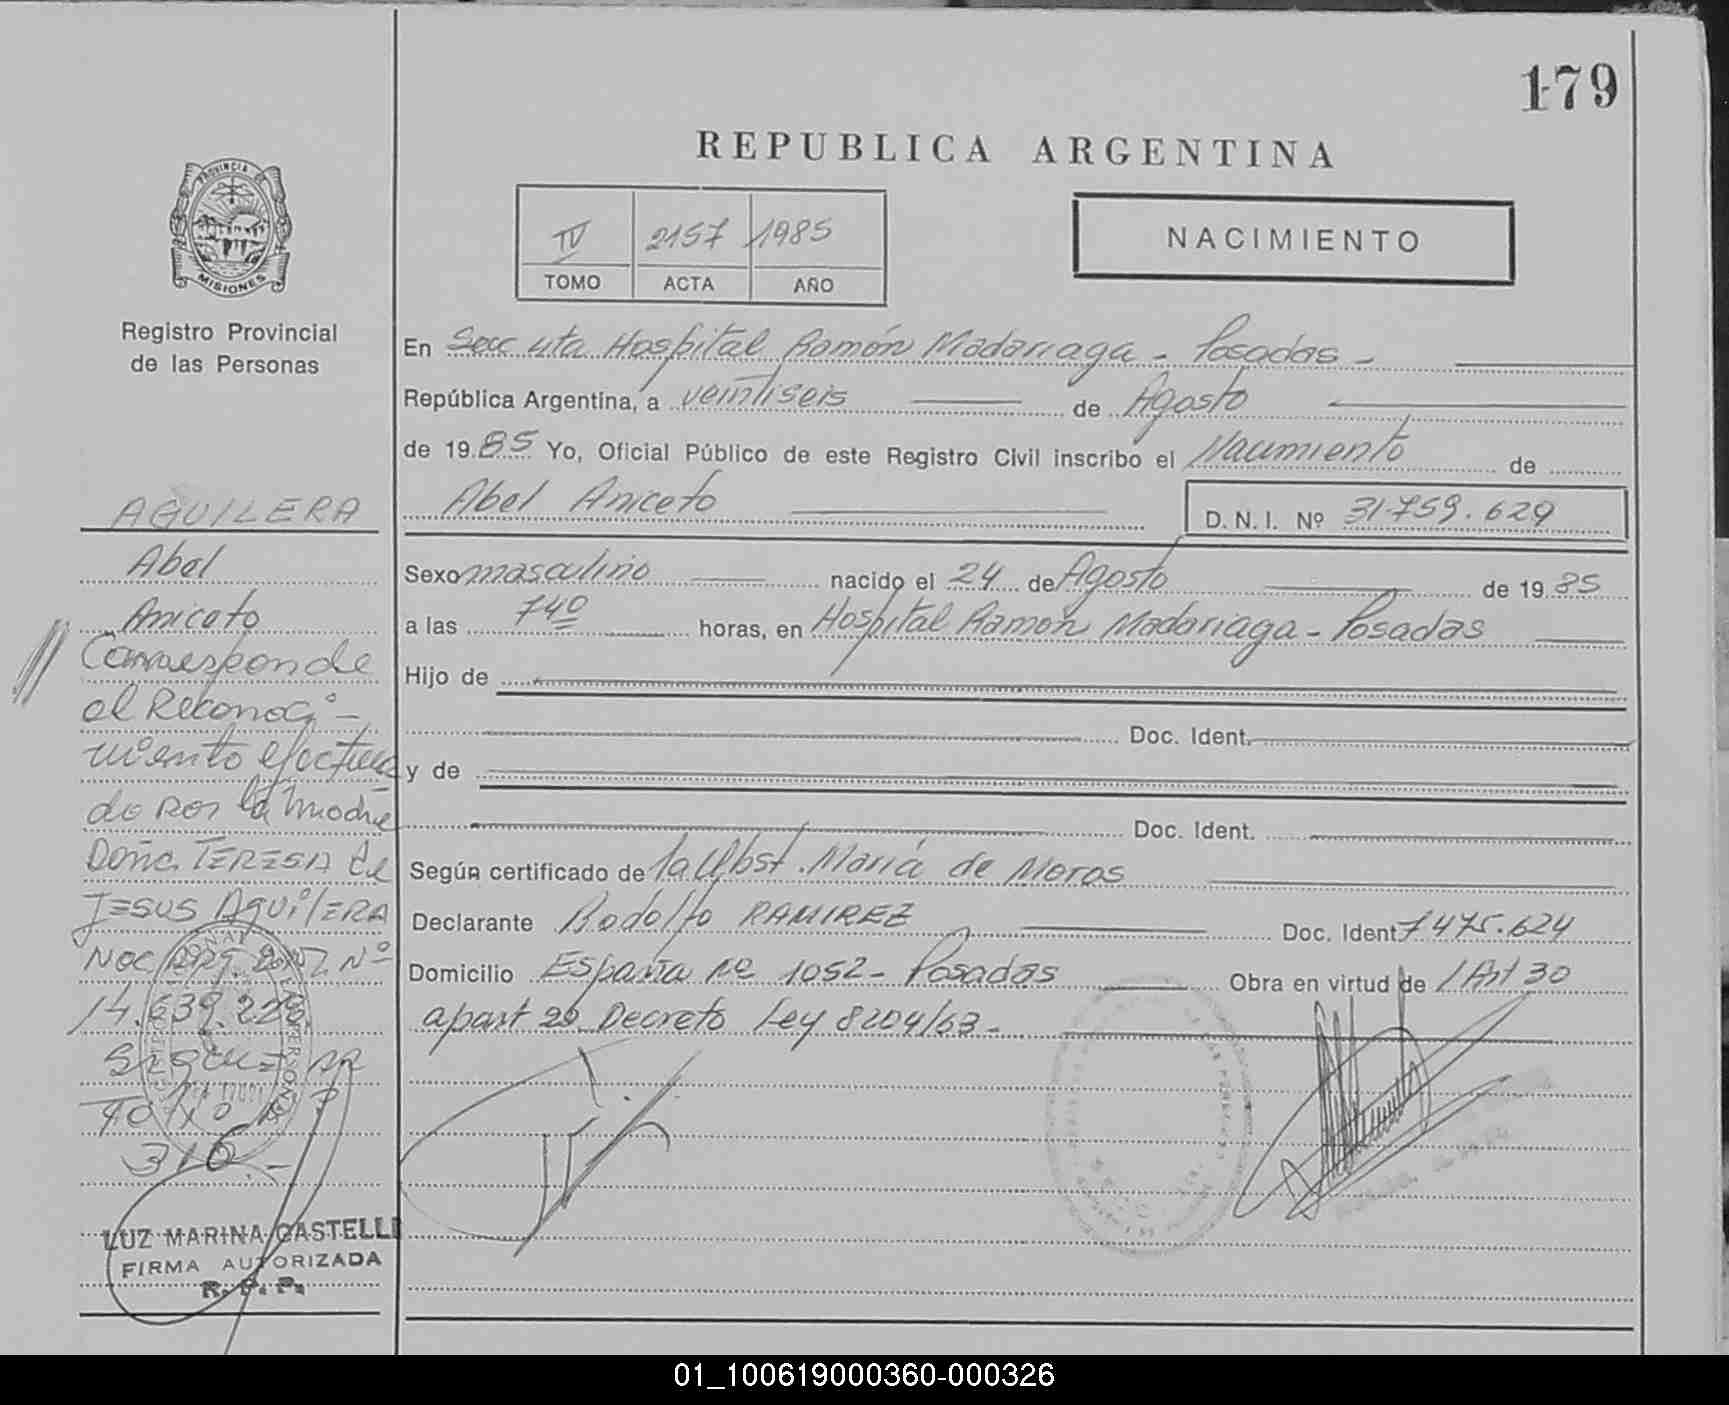 179
REPUBLICA ARGENTINA
PROVINCIA DE
MISIONES
Registro Provincial
de las Personas
IV 2157 1985
TOMO ACTA AÑO
NACIMIENTO
En Secc 4ta Hospital Ramón Madariaga - Posadas -
República Argentina, a veintiseis de Agosto
de 1985 Yo, Oficial Público de este Registro Civil inscribo el Nacimiento de
Abel Aniceto D.N.I. Nº 31.759.629
Sexo masculino nacido el 24 de Agosto de 1985
a las 7 40 horas, en Hospital Ramón Madariaga - Posadas
Hijo de
Doc. Ident.
y de
Doc. Ident.
Según certificado de la Obst. María de Moras
Declarante Rodolfo RAMIREZ Doc. Ident 7475.624
Domicilio España Nº 1052 - Posadas Obra en virtud de / Art 30
apart 2º Decreto Ley 8204/63 -
AGUILERA
Abel
Aniceto
Corresponde
al Reconoci-
miento efectua
do por la madre
Doña TERESA de
JESUS AGUILERA
NAC ARG. Nº
14.639.228
Tomo
316.-
LUZ MARINA CASTELLI
FIRMA AUTORIZADA
R. P. P.
01_100619000360-000326